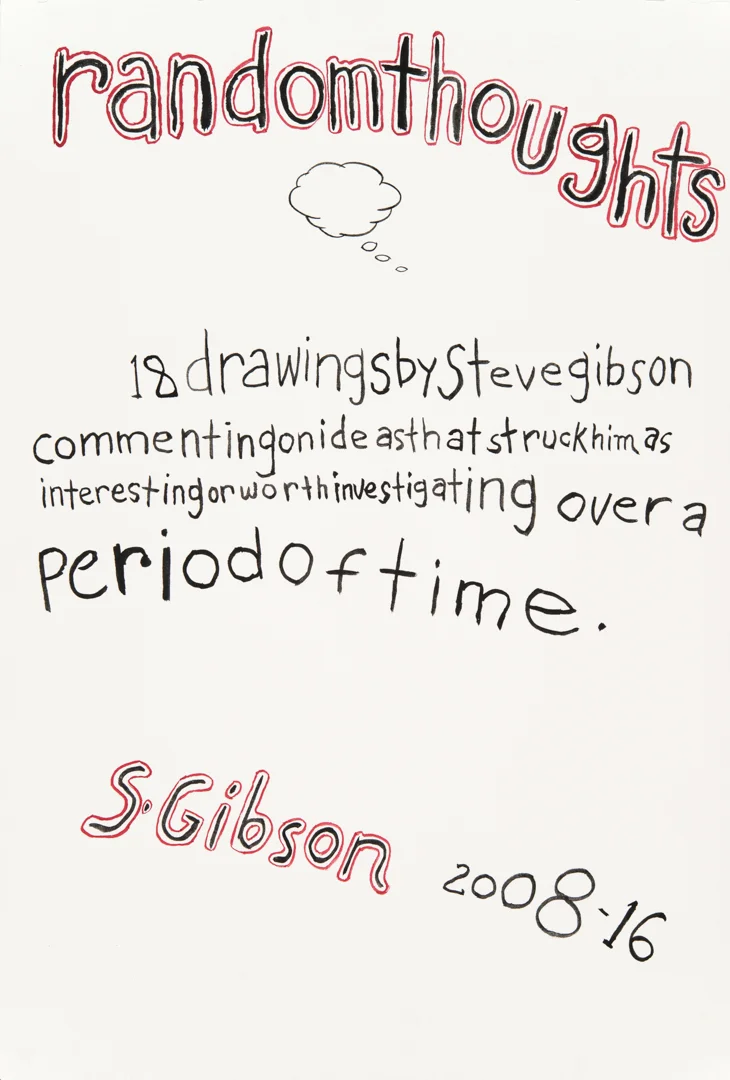 randomthoughts
18drawingsbyStevegibson
commentingonideasthatstruckhimas
interestingorworthinvestigating over a
periodoftime.
S.Gibson
2008-16